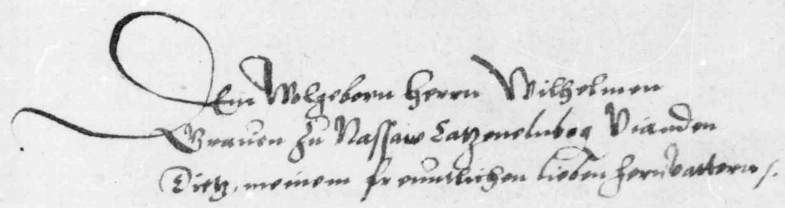 Dem Wolgeborn Herrn Wilhelmen
Grauen zu Nassaw Catzenelnbog Vianden
Dietz, meinem freuntlichen lieben hern vattern /.